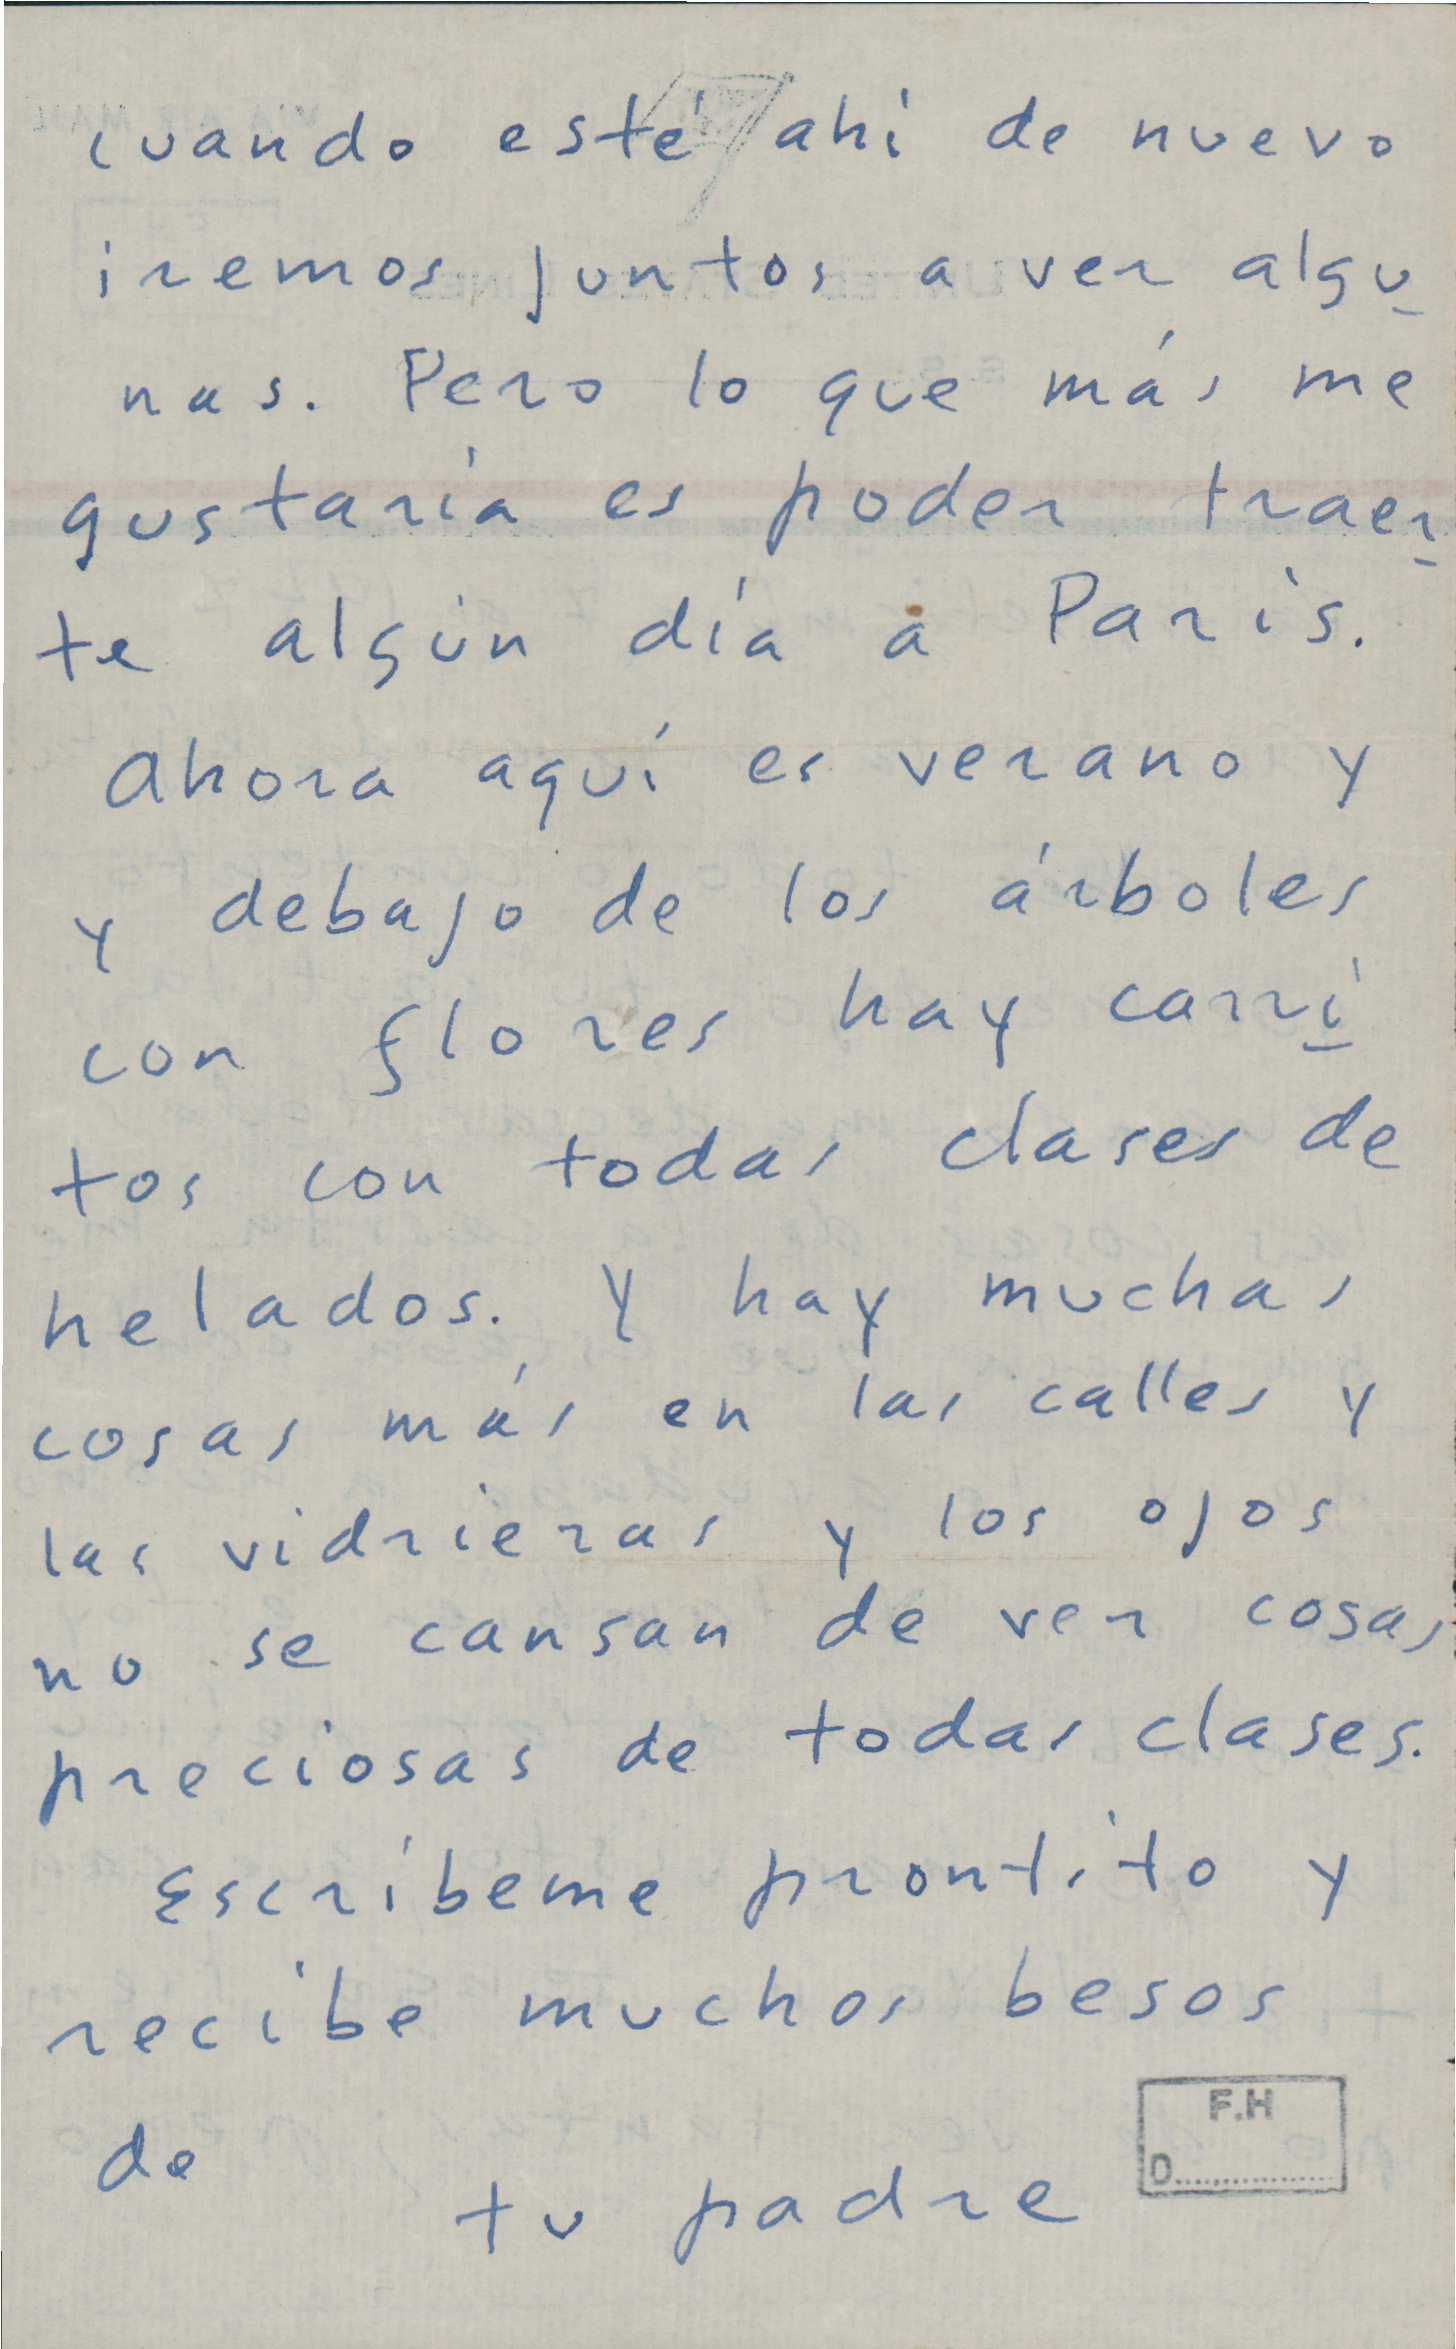 cuando esté ahí de nuevo
iremos juntos a ver algu
nas. Pero lo que más me
gustaría es poder traer
te algún día a París.
Ahora aquí es verano y
y debajo de los árboles
con flores hay carri
tos con todas clases de
helados. Y hay muchas
cosas más en las calles y
las vidrieras y los ojos
no se cansan de ver cosas
preciosas de todas clases.
Escríbeme prontito y
recibe muchos besos
de
tu padre
F.H
D................